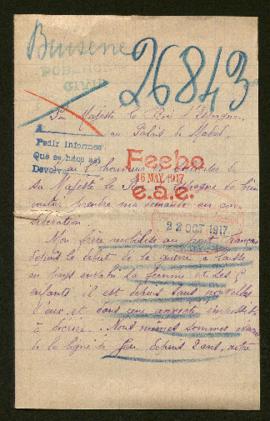 26843
Sa Majesté le Roi d'Espagne
au Palais de Madrid
A
Pedir informes
Que se hace así
Devolver
Fecho
16 MAY. 1917
e.a.e.
J'ai l'honneur de
Sa Majesté le Roi d'Espagne de bien
vouloir prendre ma demande en con
sidération.
22 OCT 1917
Mon frère mobilisé au front Français
depuis le début de la guerre a laissé
en pays envahi sa femme et ses
enfants il est depuis sans nouvelles
d'eux et dans une
à décrire. Nous mêmes sommes
de la ligne de feu depuis 2 ans, notre